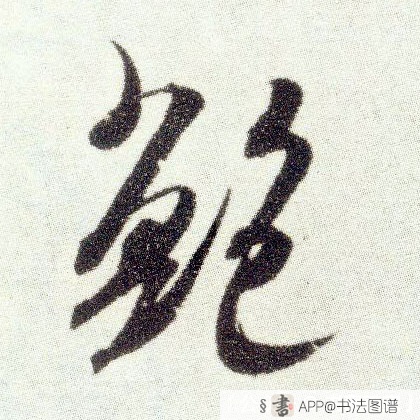 鲍
§書 APP@书法图谱